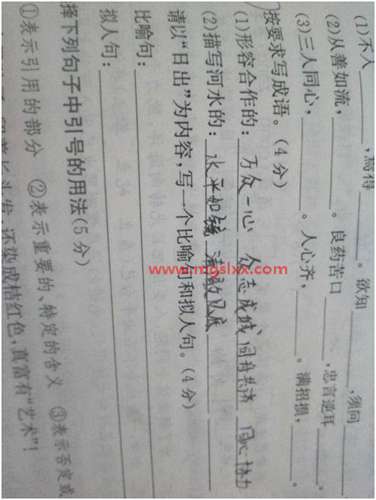 (1)不入______,焉得______。欲知______,须问______
(2)从善如流,______。良药苦口______,忠言逆耳______。
(3)三人同心,______。人心齐,______。满招损,______。
按要求写成语。(4分)
(1)形容合作的:万众一心 众志成城 同舟共济 同心协力
(2)描写河水的:水平如镜 清澈见底
www.mgslxx.com
请以“日出”为内容,写一个比喻句和拟人句。(4分)
比喻句:
拟人句:
择下列句子中引号的用法(5分)
①表示引用的部分 ②表示重要的、特定的含义 ③表示否定或
长头发,还染成桔红色,真富有“艺术”!